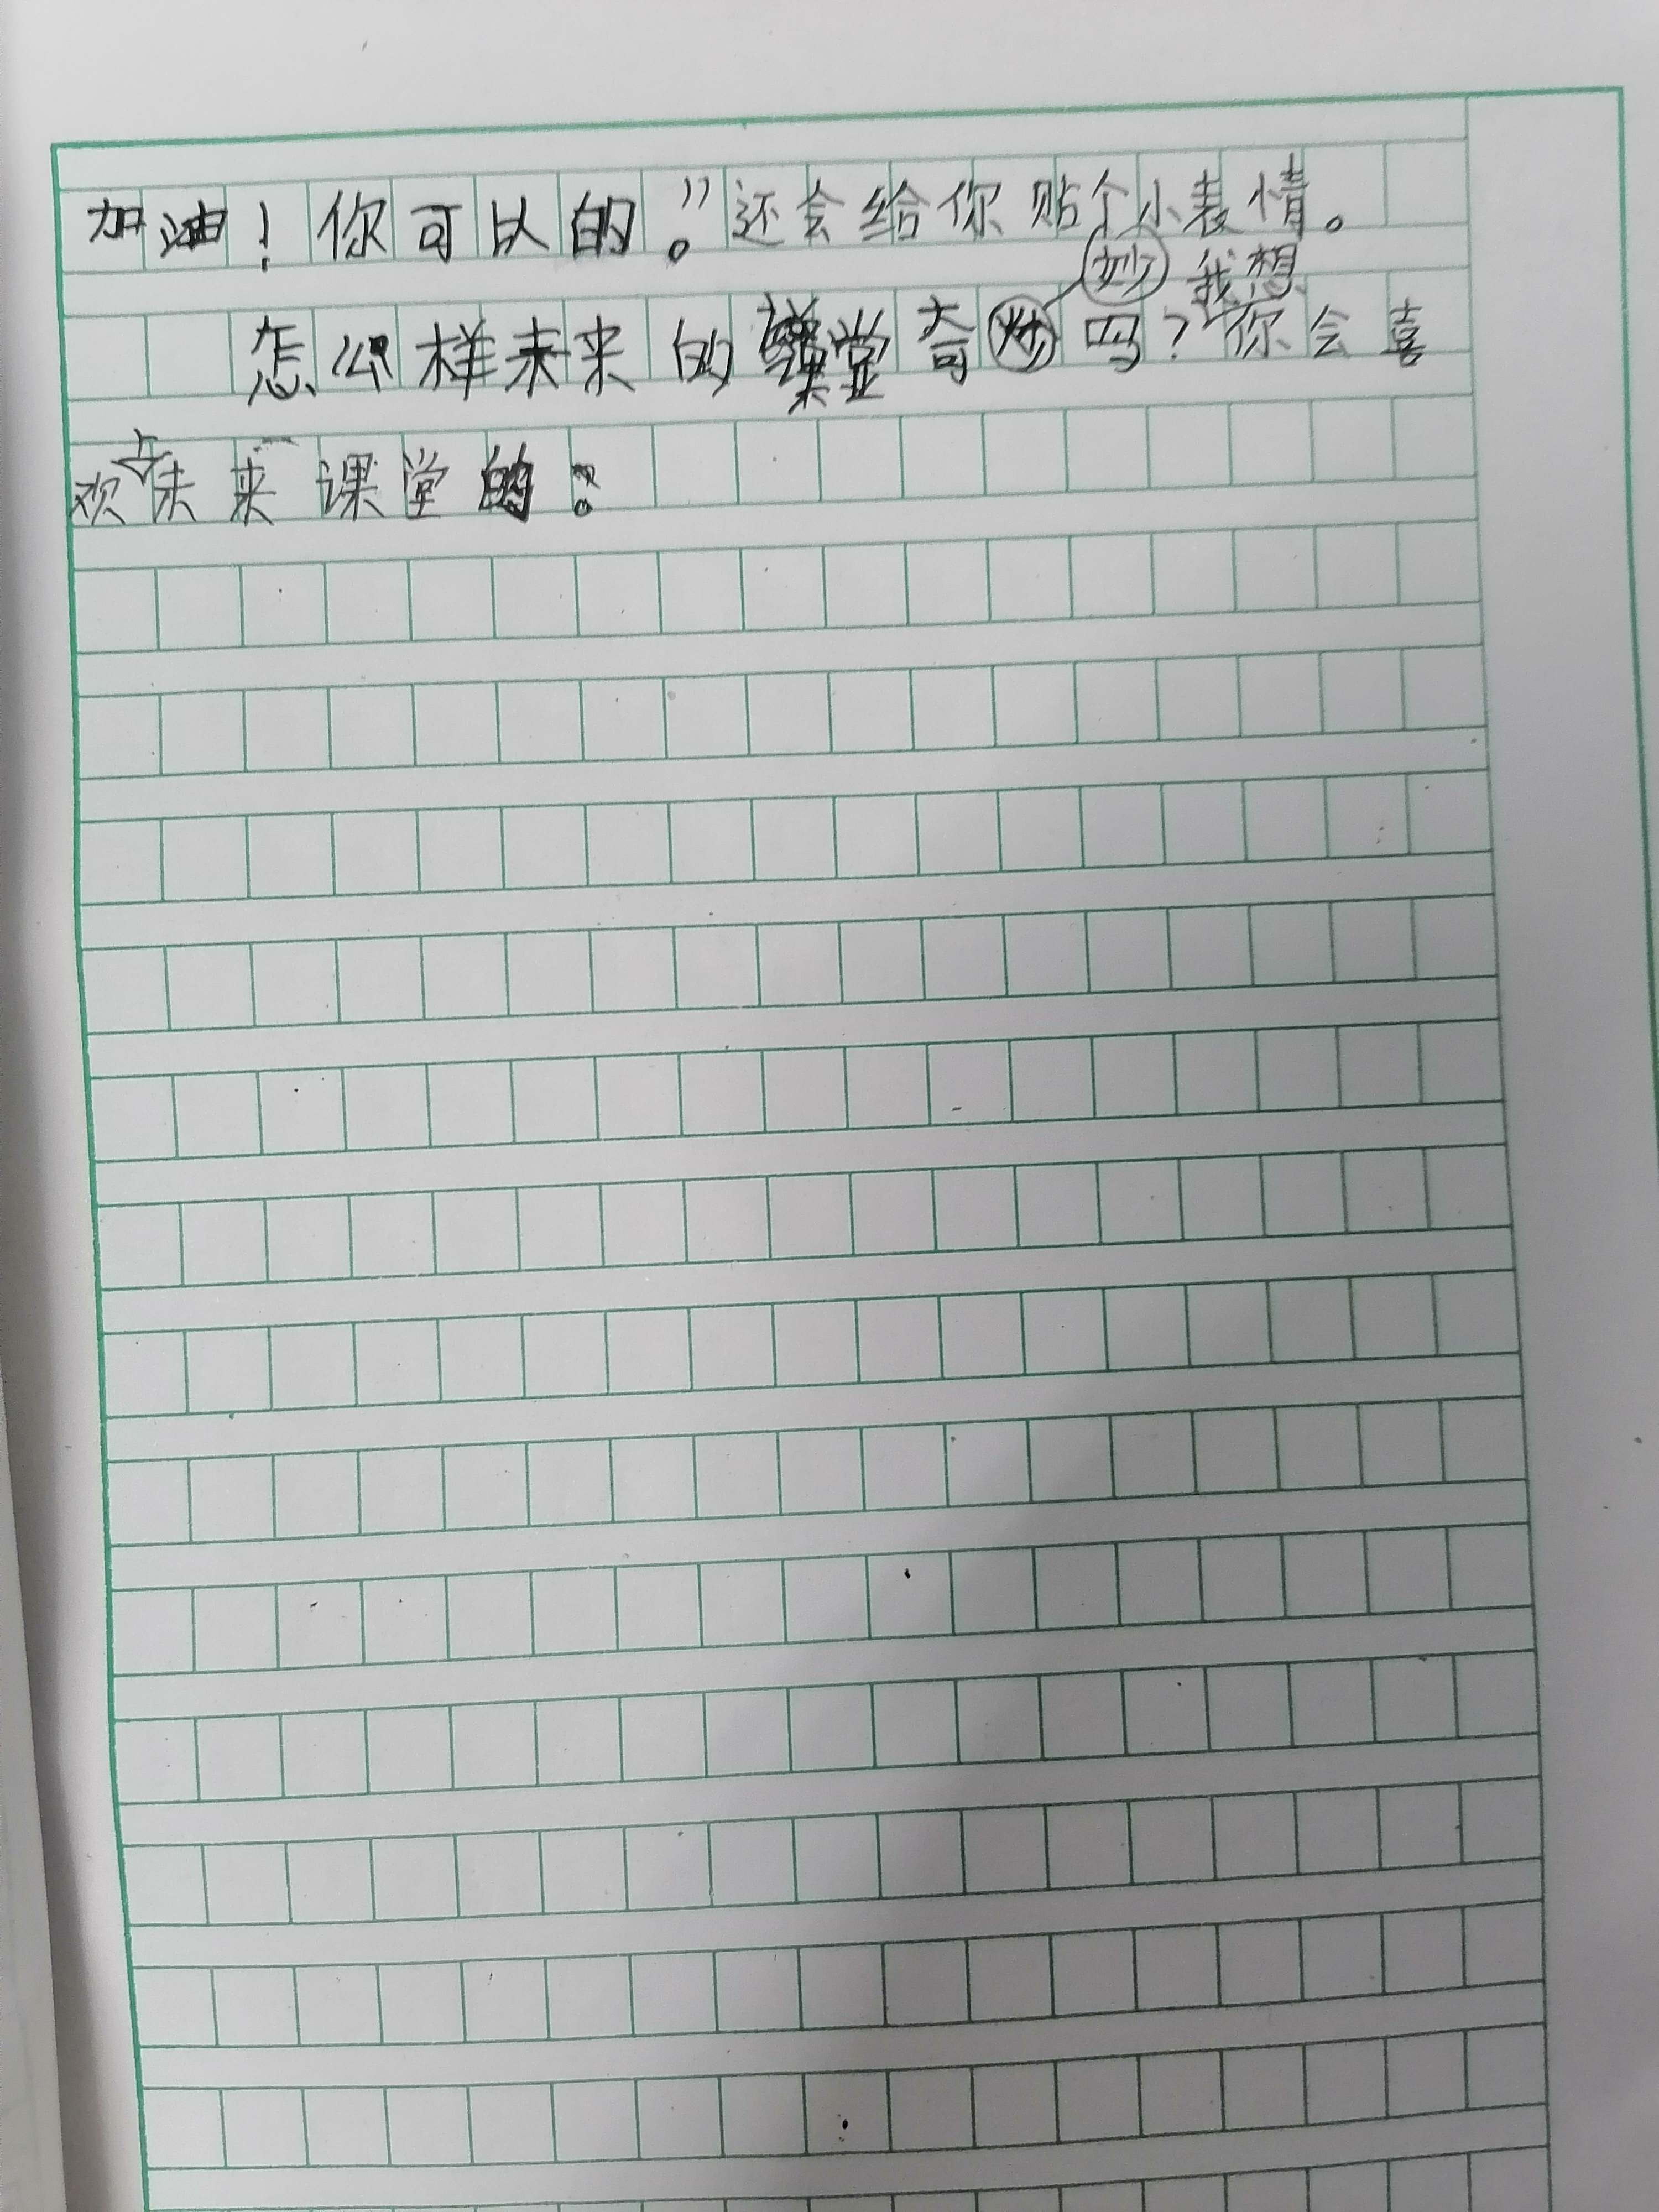 加油！你可以的。”还会给你贴个小表情。
妙 我想
怎么样未来的课堂奇炒吗？你会喜
欢上未来课堂的。